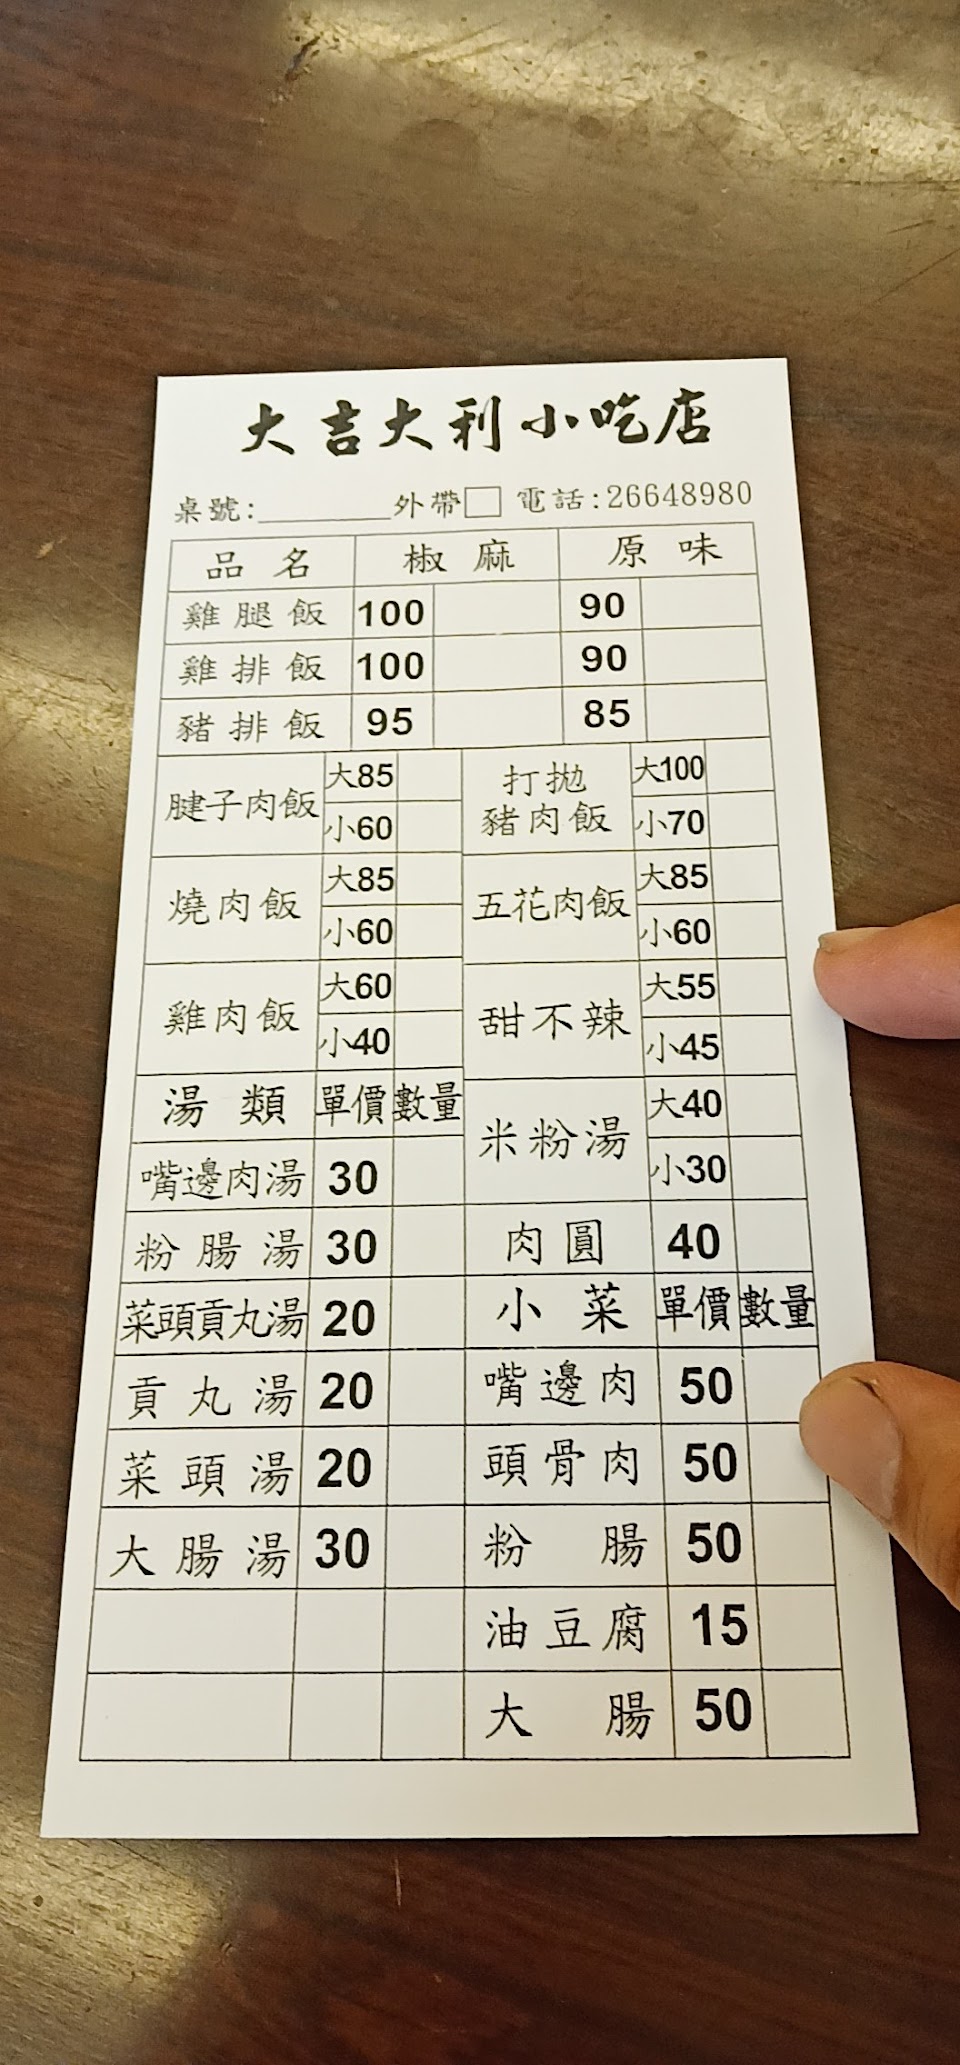 大吉大利小吃店
桌號:________外帶□ 電話:26648980
品名 椒麻 原味
雞腿飯 100 90
雞排飯 100 90
豬排飯 95 85
腱子肉飯 大85 小60
打拋豬肉飯 大100 小70
燒肉飯 大85 小60
五花肉飯 大85 小60
雞肉飯 大60 小40
甜不辣 大55 小45
湯類 單價 數量
米粉湯 大40 小30
嘴邊肉湯 30
粉腸湯 30
肉圓 40
菜頭貢丸湯 20
小菜 單價 數量
貢丸湯 20
嘴邊肉 50
菜頭湯 20
頭骨肉 50
大腸湯 30
粉腸 50
油豆腐 15
大腸 50